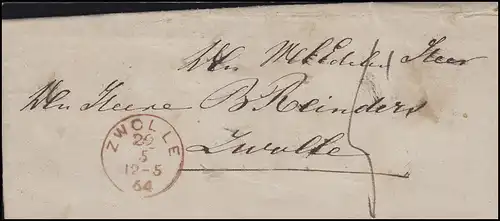 Den WelEdelen Heer
Den Heere B Reinders
Zwolle
ZWOLLE
29
5
12-5
64